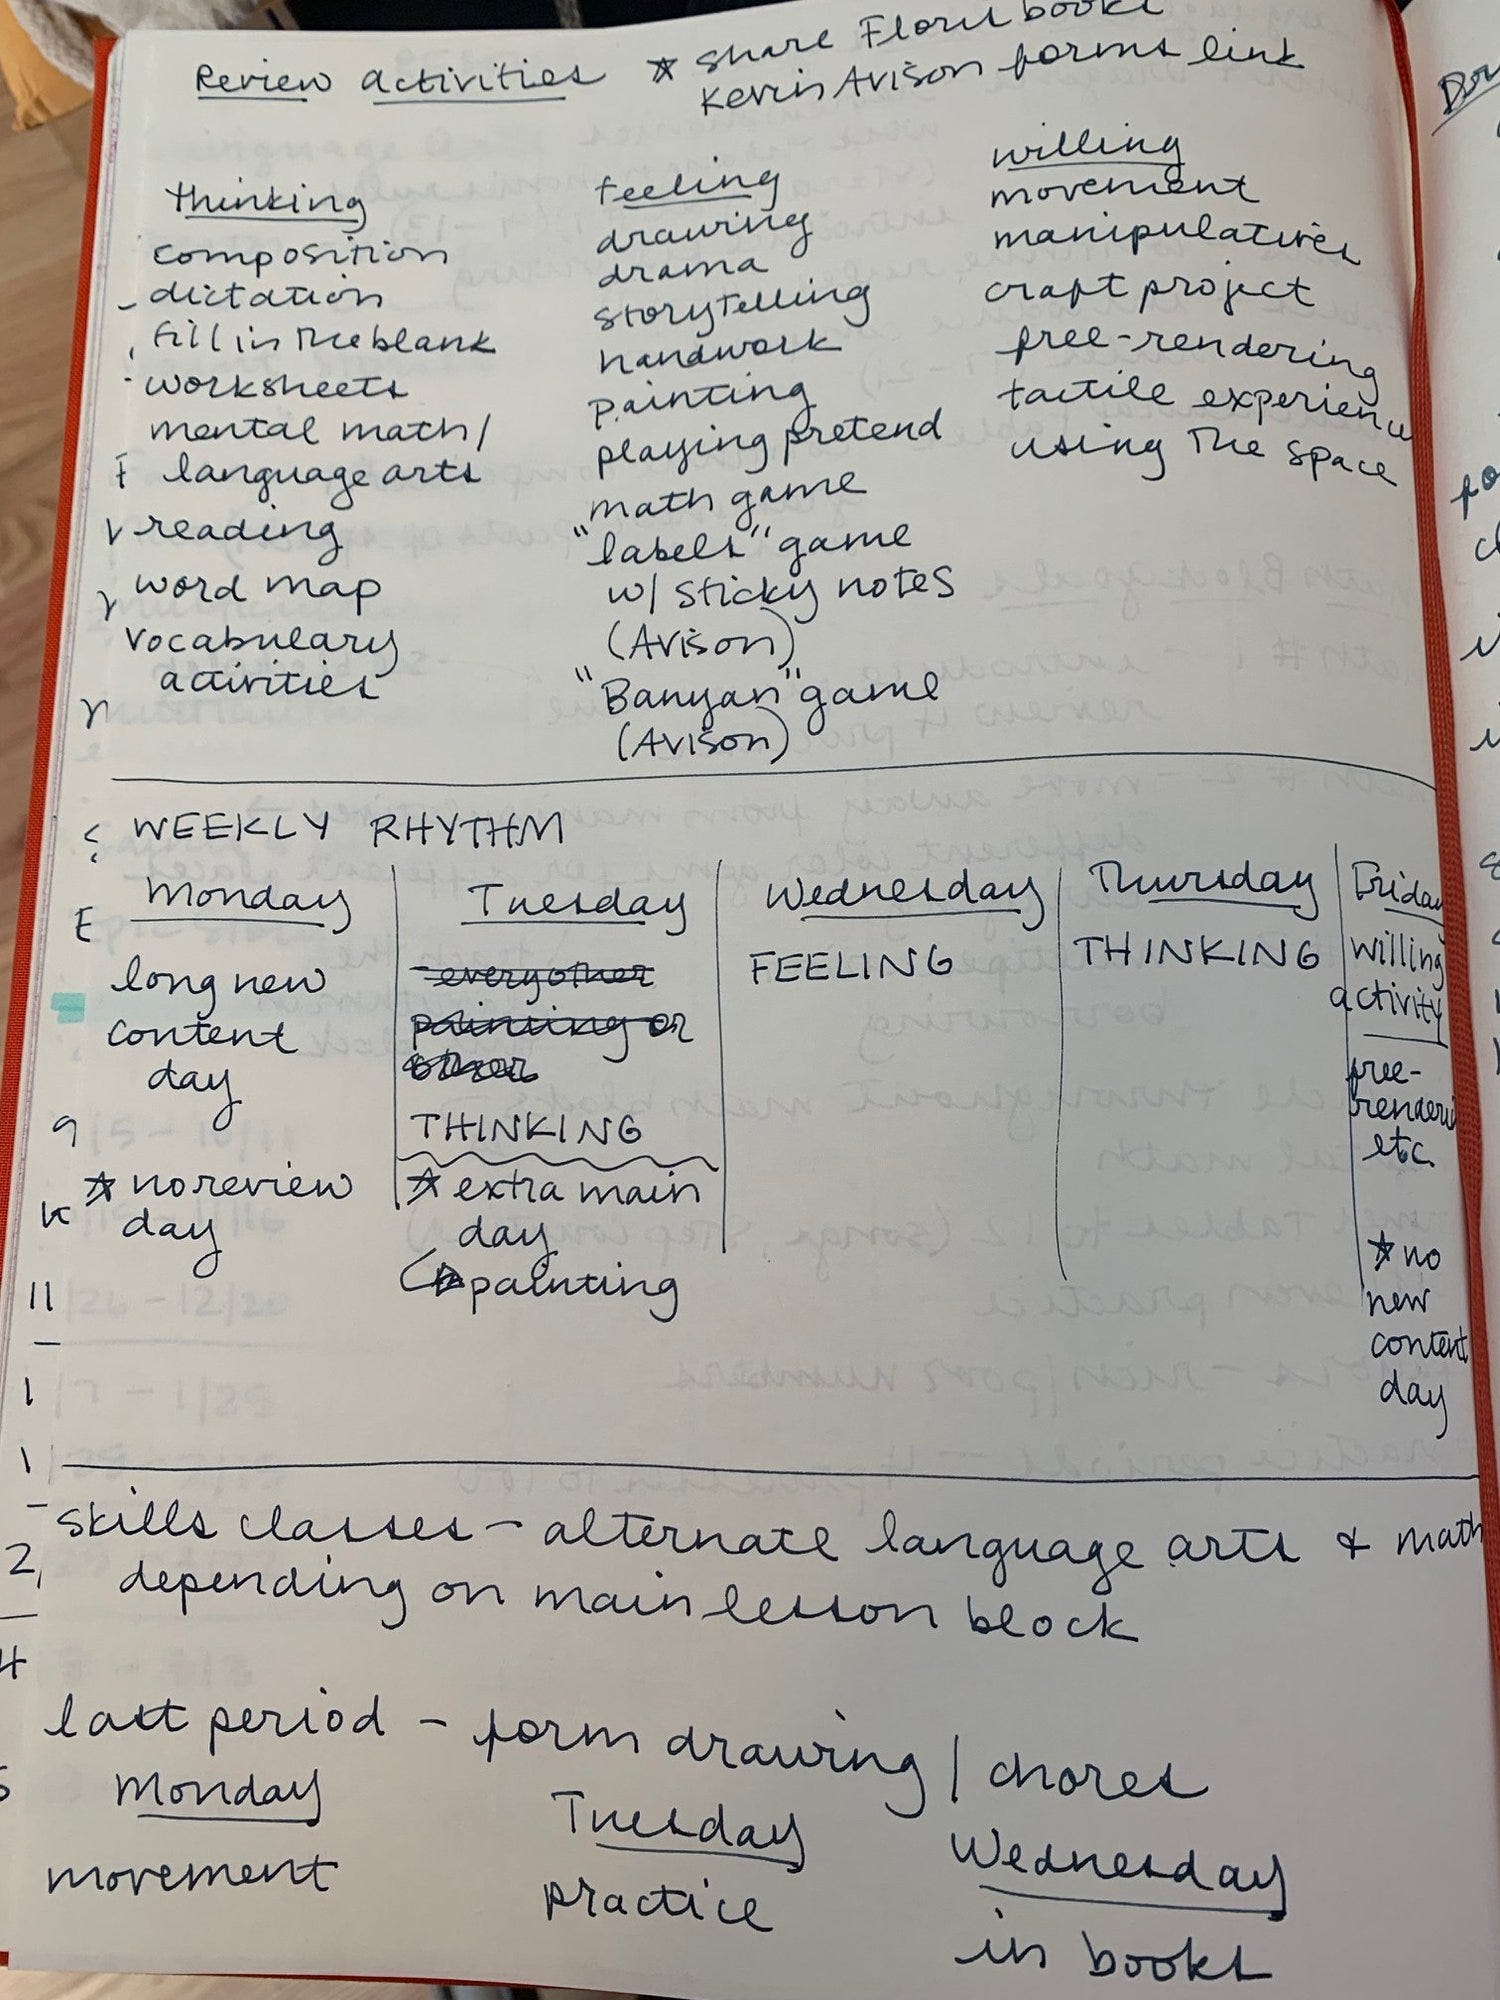 Review activities ★ share Floris books
Kevin Avison forms link
thinking
composition
dictation
fill in the blank
worksheets
mental math/
language arts
reading
word map
vocabulary
activities
feeling
drawing
drama
storytelling
handwork
painting
playing pretend
math game
"labels" game
w/ sticky notes
(Avison)
"Banyan" game
(Avison)
willing
movement
manipulatives
craft project
free-rendering
tactile experience
using the space
WEEKLY RHYTHM
Monday
long new
content
day
★ no review
day
Tuesday
every other
painting or
other
THINKING
★ extra main
day
painting
Wednesday
FEELING
Thursday
THINKING
Friday
willing
activity
free-
renderi
etc.
★ no
new
content
day
skills classes - alternate language arts & math
depending on main lesson block
last period - form drawing / chores
Monday
movement
Tuesday
practice
Wednesday
in books